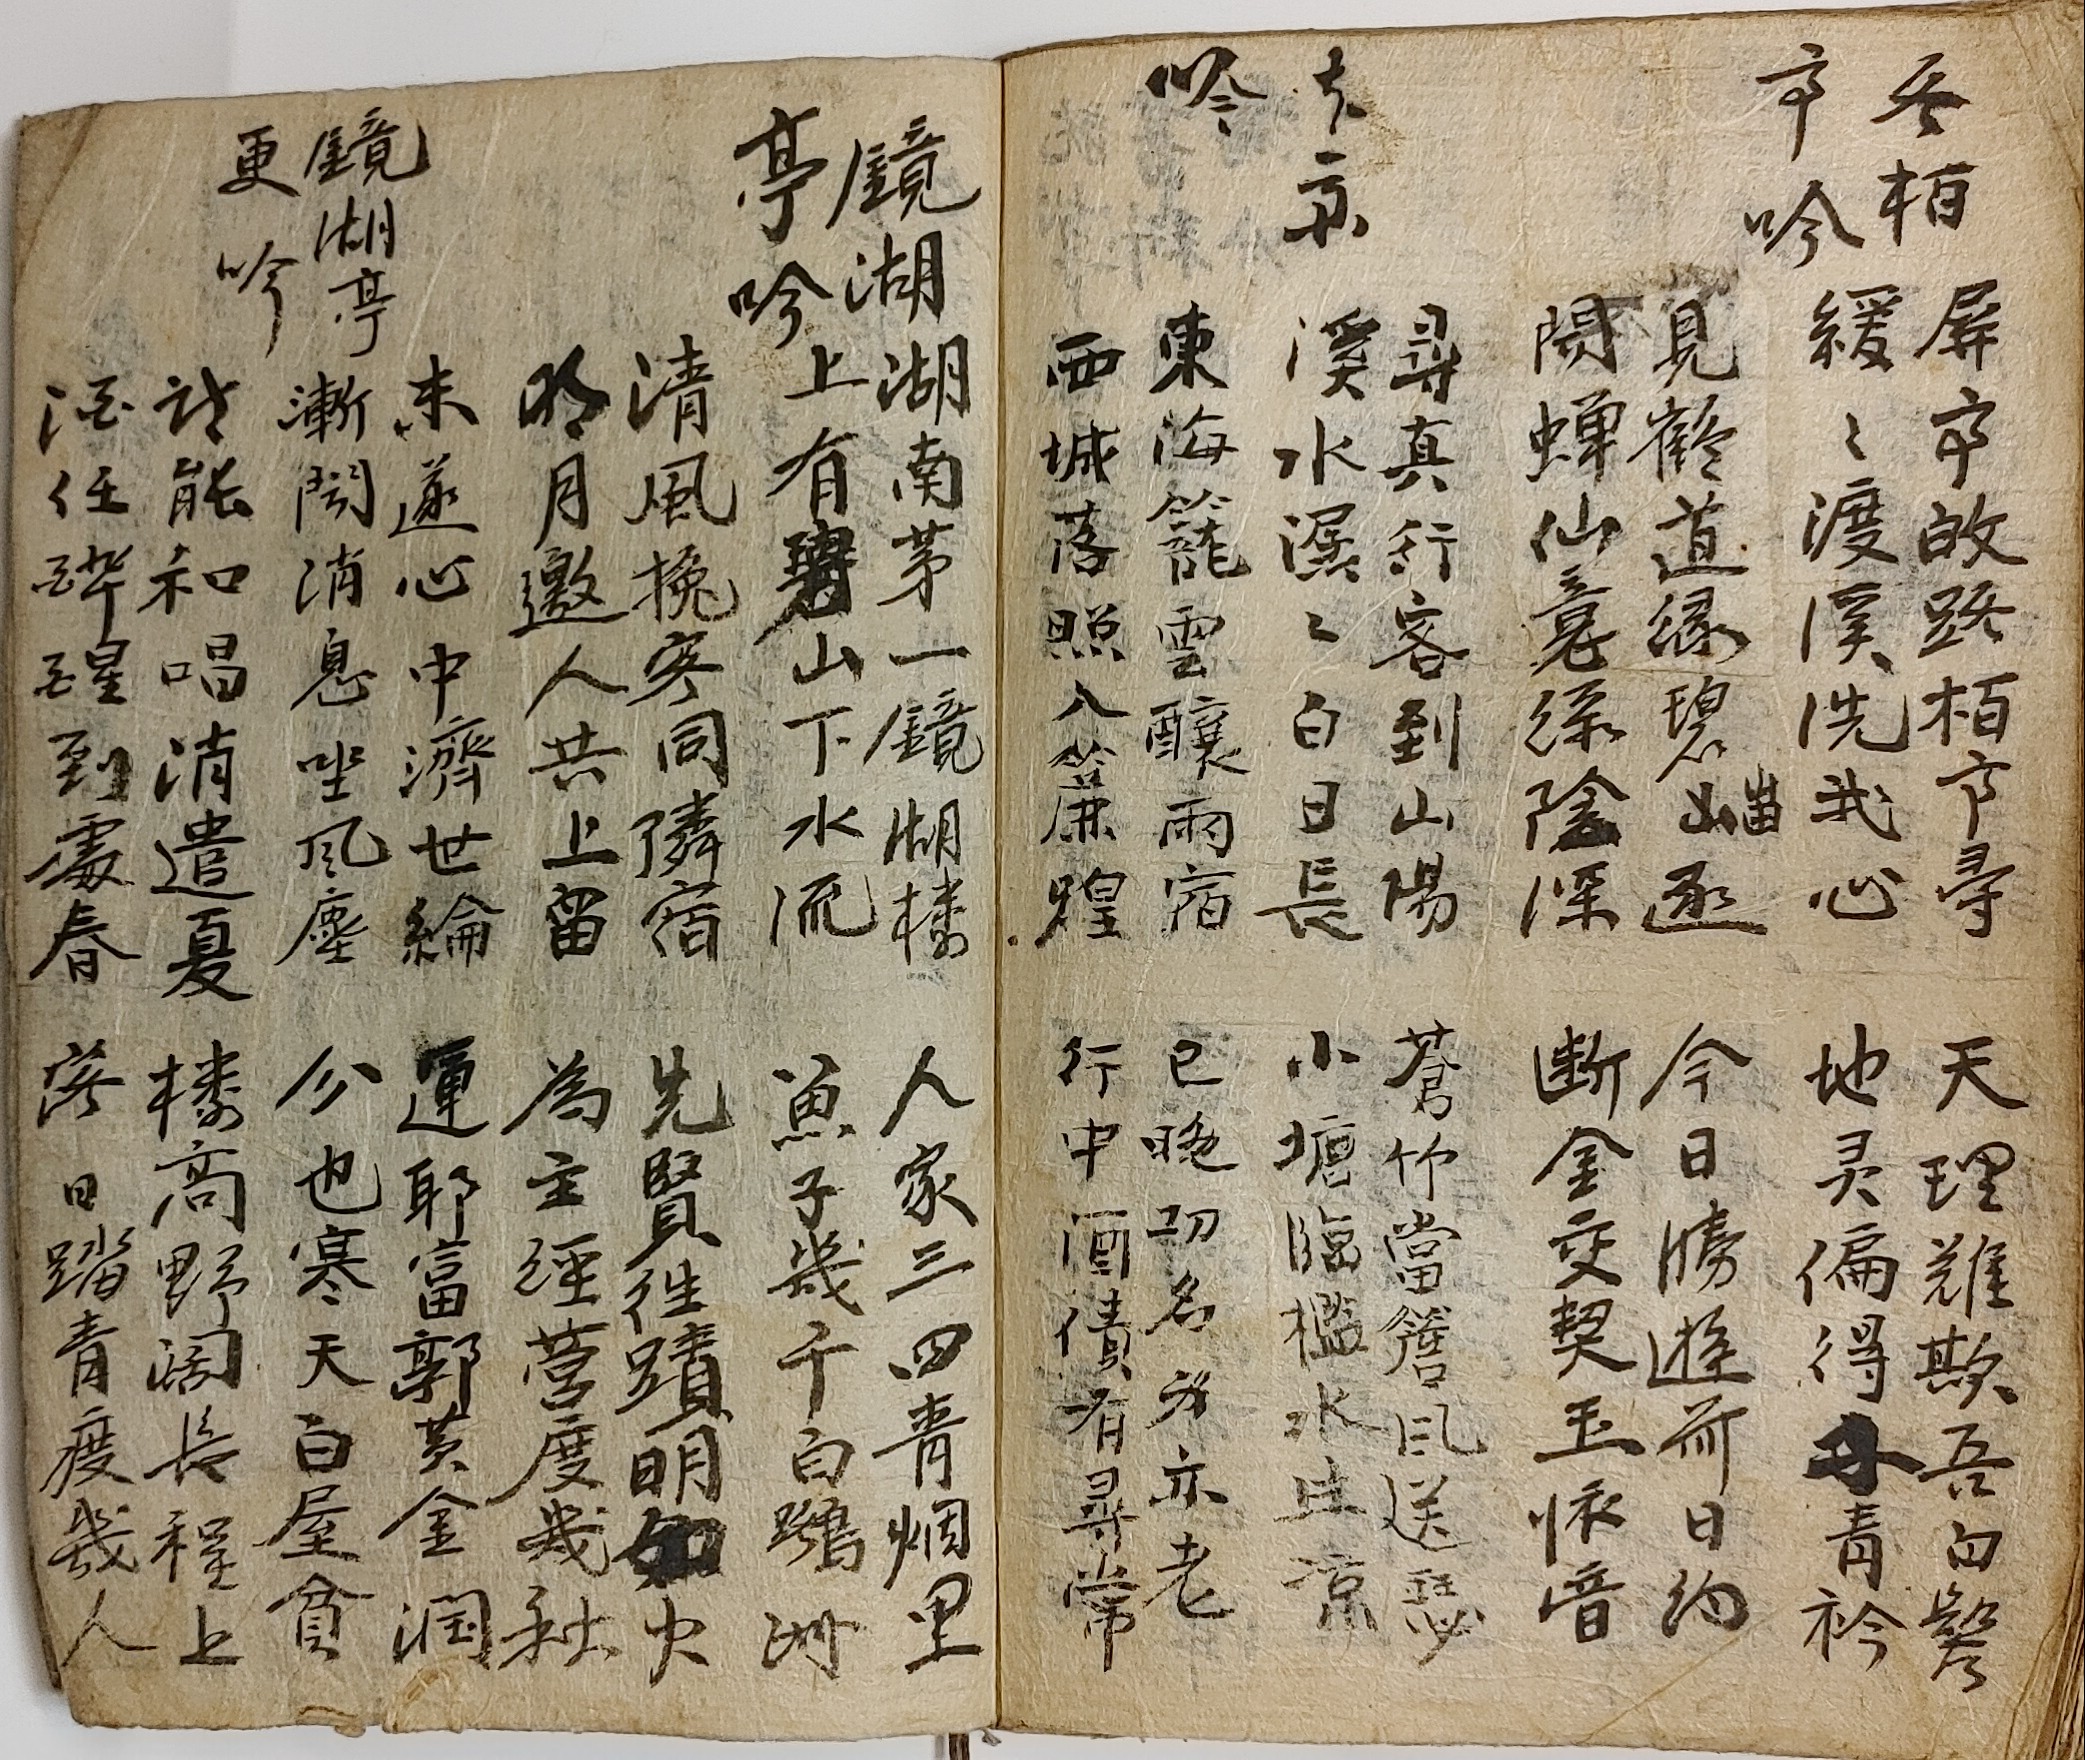 吞栢
亭吟
屏亭啟路栢亭尋
天理難欺吾白髮
緩々渡溪洗我心
地灵偏得子青衿
見鶴道緣碧山逐
今日勝遊前日約
陽蟬仙意綠陰深
断金交契玉懷音
京
吟
尋真行客到山陽
蒼竹當簷风送瑟
溪水潺々白日長
小塘臨檻水生凉
東海籠雲釀雨宿
已晚功名身亦老
西城落照入簾煌
行中酒債有尋常
鏡湖
亭吟
湖南茅一鏡湖樓
人家三四青烟里
上有碧山下水流
魚子幾千白鷺洲
清風挽客同隣宿
先賢往蹟明如火
明月邀人共上留
為主經營度幾秋
鏡湖亭
更吟
未遂心中濟世綸
運耶富郭黃金潤
漸闻消息坐风塵
分也寒天白屋貧
詩能和唱消遣夏
樓高野阔長程上
酒任醉醒到處春
落日踏青度幾人